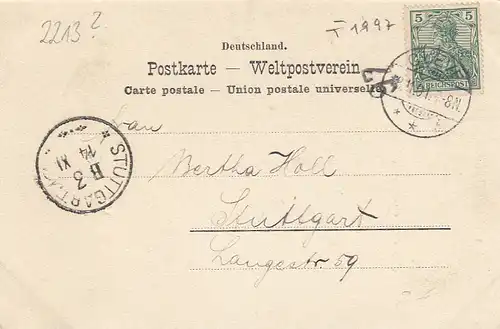 2213?
T 1997
5 5
REICHSPOST
Deutschland.
Postkarte — Weltpostverein
Carte postale — Union postale universelle
Bertha Holl
Stuttgart
Langestr 59
STUTTGART
B 3
14 XI